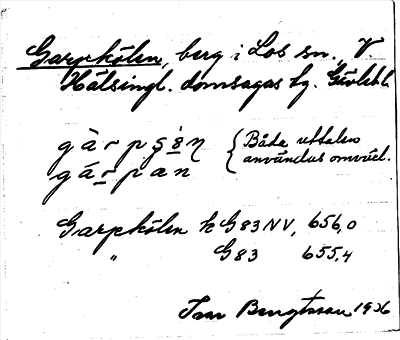 Garpkölen, berg i Los sn., V.
Hälsingl. domsagas tg. Gävlebl.
gàrpçö̀n { Båda uttalen
gárpan användas omväxl.
Garpkölen k G83NV, 656,0
" G83 655,4
Ivar Bengtsson 1936